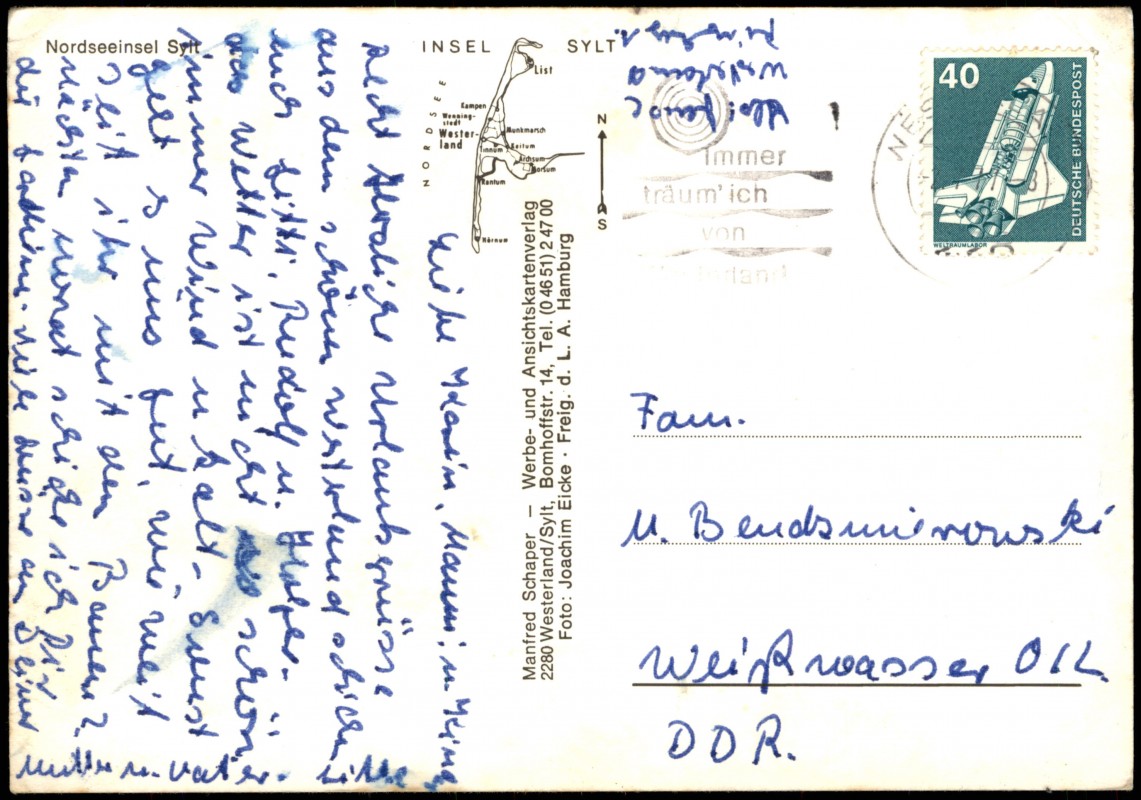 Nordseeinsel Sylt
INSEL SYLT
NORDSEE
List
Kampen
Wenning-
stadt
Wester-
land
Munkmarsch
Tinnum
Keitum
Archsum
Morsum
Rantum
Hörnum
N
S
Manfred Schaper – Werbe- und Ansichtskartenverlag
2280 Westerland/Sylt, Bomhoffstr. 14, Tel. (0 46 51) 2 47 00
Foto: Joachim Eicke · Freig. d. L. A. Hamburg
Immer
träum' ich
von
40
DEUTSCHE BUNDESPOST
WELTRAUMLABOR
Liebe Mann u.
Recht herzliche Urlaubsgrüsse
aus dem schönen Westerland schicken
Euch Rudolf u.
das Wetter ist nicht schön
immer Wind u. kalt – Sonst
geht es uns gut, wie weit
seit ihr mit den Bauen?
nächsten Monat schicke ich Dir
die an Deine
Mutter u. Vater. Bitte
Westerland
Fam.
M. Bendsmierowski
Weißwasser O/L
DDR.